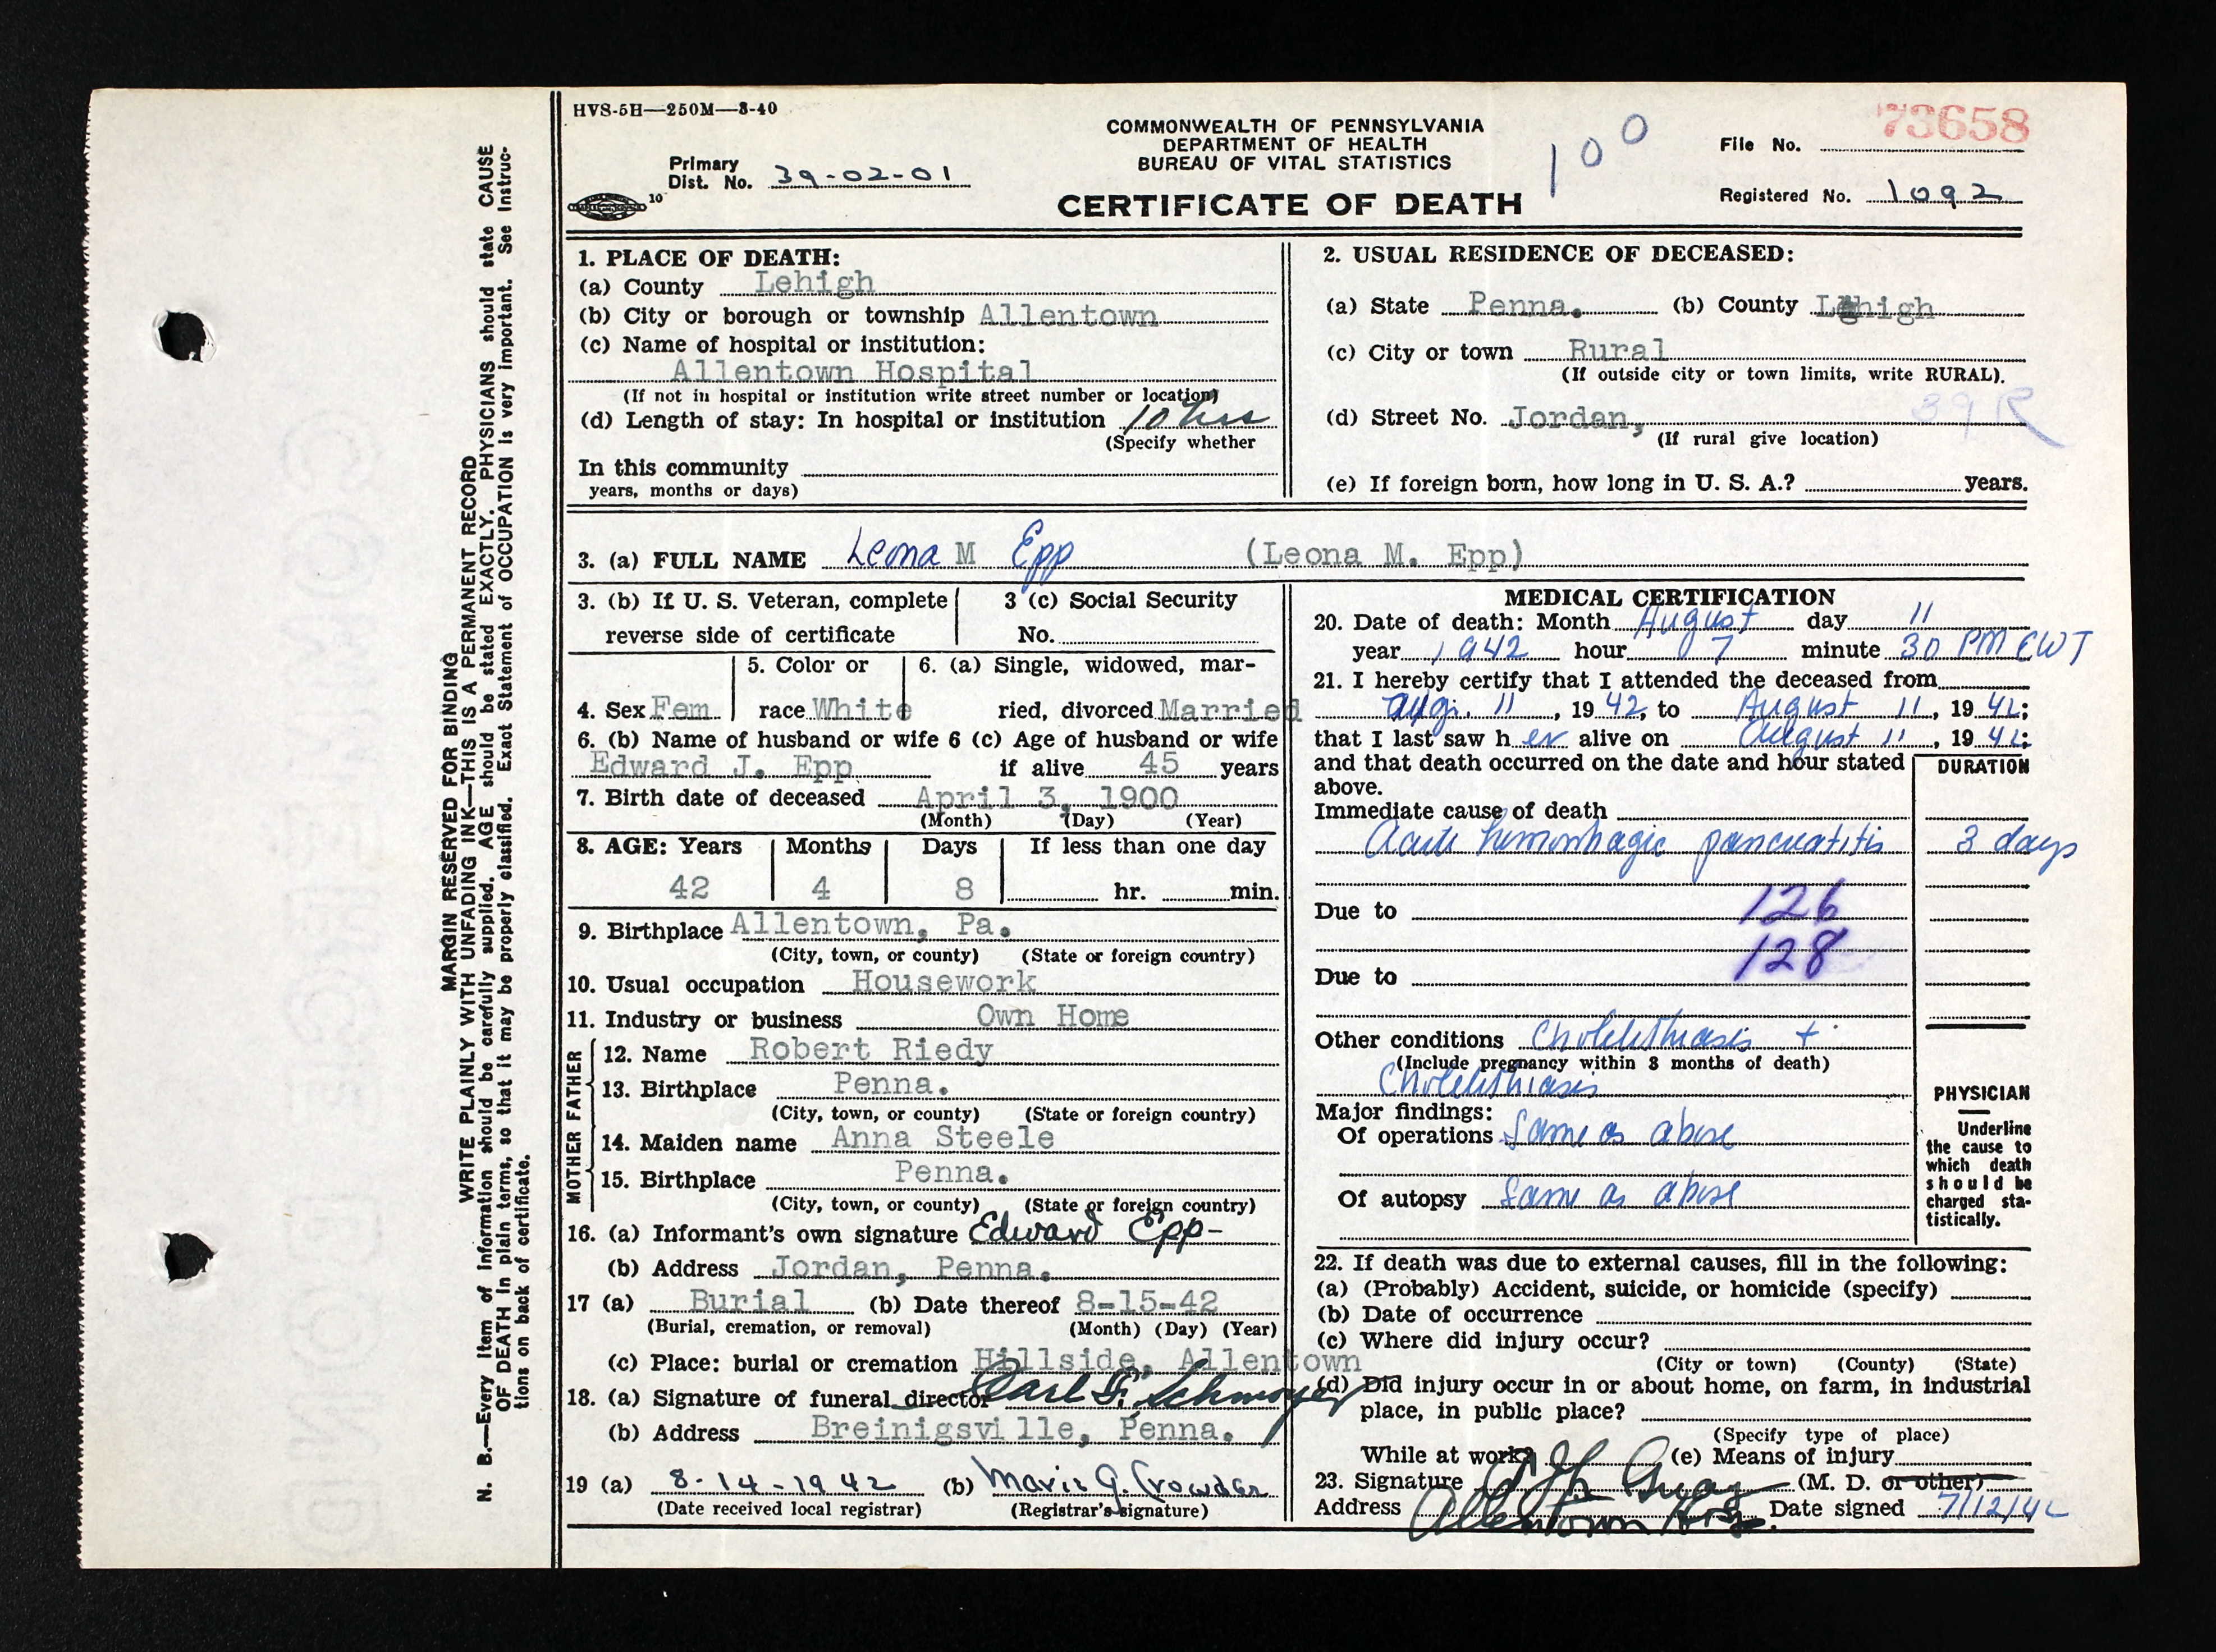 HVS-5H—250M—3-40
COMMONWEALTH OF PENNSYLVANIA
DEPARTMENT OF HEALTH
BUREAU OF VITAL STATISTICS
CERTIFICATE OF DEATH
100
73658
File No.
Primary
Dist. No. 39-02-01
10
Registered No. 1092
MARGIN RESERVED FOR BINDING
WRITE PLAINLY WITH UNFADING INK—THIS IS A PERMANENT RECORD
N. B.—Every item of information should be carefully supplied. AGE should be stated EXACTLY. PHYSICIANS should state CAUSE
OF DEATH in plain terms, so that it may be properly classified. Exact Statement of OCCUPATION is very important. See instruc-
tions on back of certificate.
1. PLACE OF DEATH:
(a) County Lehigh
(b) City or borough or township Allentown
(c) Name of hospital or institution:
Allentown Hospital
(If not in hospital or institution write street number or location)
(d) Length of stay: In hospital or institution 10 hrs
(Specify whether
In this community
years, months or days)
2. USUAL RESIDENCE OF DECEASED:
(a) State Penna. (b) County Lehigh
(c) City or town Rural
(If outside city or town limits, write RURAL).
39 R
(d) Street No. Jordan,
(If rural give location)
(e) If foreign born, how long in U. S. A.? years.
3. (a) FULL NAME Leona M Epp (Leona M. Epp)
3. (b) If U. S. Veteran, complete
reverse side of certificate
3 (c) Social Security
No.
4. Sex Fem
5. Color or
race White
6. (a) Single, widowed, mar-
ried, divorced Married
6. (b) Name of husband or wife 6 (c) Age of husband or wife
Edward J. Epp if alive 45 years
7. Birth date of deceased April 3, 1900
(Month) (Day) (Year)
8. AGE: Years Months Days If less than one day
42 4 8 hr. min.
9. Birthplace Allentown, Pa.
(City, town, or county) (State or foreign country)
10. Usual occupation Housework
11. Industry or business Own Home
FATHER
12. Name Robert Riedy
13. Birthplace Penna.
(City, town, or county) (State or foreign country)
MOTHER
14. Maiden name Anna Steele
15. Birthplace Penna.
(City, town, or county) (State or foreign country)
16. (a) Informant's own signature Edward Epp-
(b) Address Jordan, Penna.
17 (a) Burial (b) Date thereof 8-15-42
(Burial, cremation, or removal) (Month) (Day) (Year)
(c) Place: burial or cremation Hillside, Allentown
18. (a) Signature of funeral director Carl F. Schmoyer
(b) Address Breinigsville, Penna.
19 (a) 8-14-1942 (b) Marie G. Crowder
(Date received local registrar) (Registrar's signature)
MEDICAL CERTIFICATION
20. Date of death: Month August day 11
year 1942 hour 7 minute 30 PM EWT
21. I hereby certify that I attended the deceased from
Aug. 11, 1942, to August 11, 1942;
that I last saw her alive on August 11, 1942;
and that death occurred on the date and hour stated
above.
DURATION
Immediate cause of death
Acute hemorrhagic pancreatitis 3 days
Due to 126
128
Due to
Other conditions Cholelithiasis +
(Include pregnancy within 3 months of death)
Cholelithiasis
Major findings:
Of operations Same as above
Of autopsy Same as above
PHYSICIAN
Underline
the cause to
which death
should be
charged sta-
tistically.
22. If death was due to external causes, fill in the following:
(a) (Probably) Accident, suicide, or homicide (specify)
(b) Date of occurrence
(c) Where did injury occur?
(City or town) (County) (State)
(d) Did injury occur in or about home, on farm, in industrial
place, in public place?
(Specify type of place)
While at work? (e) Means of injury
23. Signature (M. D. or other)
Address Allentown Hosp. Date signed 7/12/42